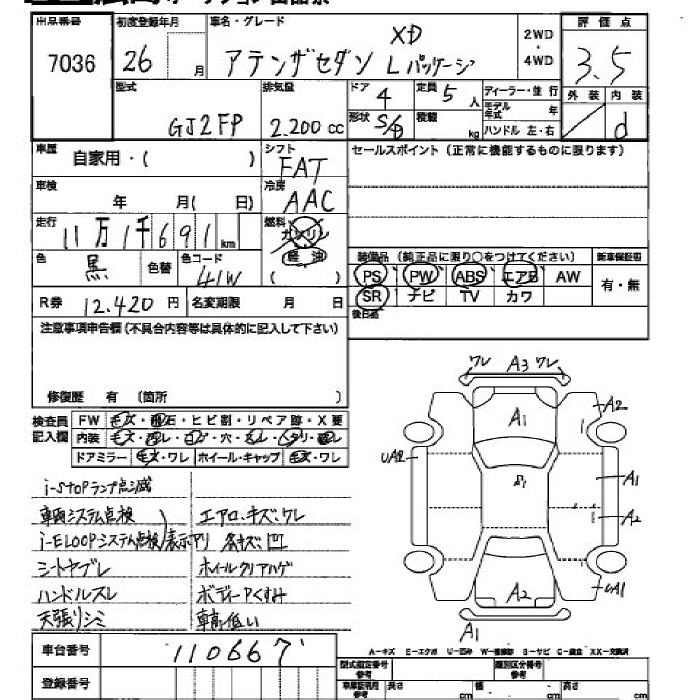 出品番号 初度登録年月 車名・グレード 評価点
7036 26 月 アテンザセダン XD Lパッケージ 2WD・4WD 3.5
型式 GJ2FP 排気量 2.200cc ドア 4 定員 5人 ディーラー・並行 外装 内装 d
形状 S/D 積載 kg モデル年式 年 ハンドル 左・右
車歴 自家用・( ) シフト FAT セールスポイント(正常に機能するものに限ります)
車検 年 月( 日) 冷房 AAC
走行 11万1千691km 燃料 ガソリン 軽油 ( )
色 黒 色替 色コード 41W 装備品(純正品に限り○をつけてください) 新車保証書
PS PW ABS エアB AW 有・無
R券 12.420円 名変期限 月 日 SR ナビ TV カワ
注意事項申告欄(不具合内容等は具体的に記入して下さい) 後日品
修復歴 有 (箇所 )
検査員記入欄 FW キズ・飛石・ヒビ割・リペア跡・X要
内装 キズ・・コゲ・穴・・・
ドアミラー キズ・ワレ ホイール・キャップ キズ・ワレ
i-STOPランプ点滅
車両システム点検 エアロ、キズ、ワレ
i-ELOOPシステム点検 表示アリ 各キズ、凹
シートヤブレ ホイールクリアハゲ
ハンドルスレ ボディーPくすみ
天張リシミ 車高低い
ワレ A3 ワレ
A1 A2
UA2 A1
A2
A2 UA1
A1
A-キズ E-エクボ U-凹み W-補修跡 S-サビ C-腐食 XX-交換済
車台番号 110667
登録番号
型式指定番号 参考 類別区分番号 参考
車庫証明用 参考 長さ cm 幅 cm 高さ cm